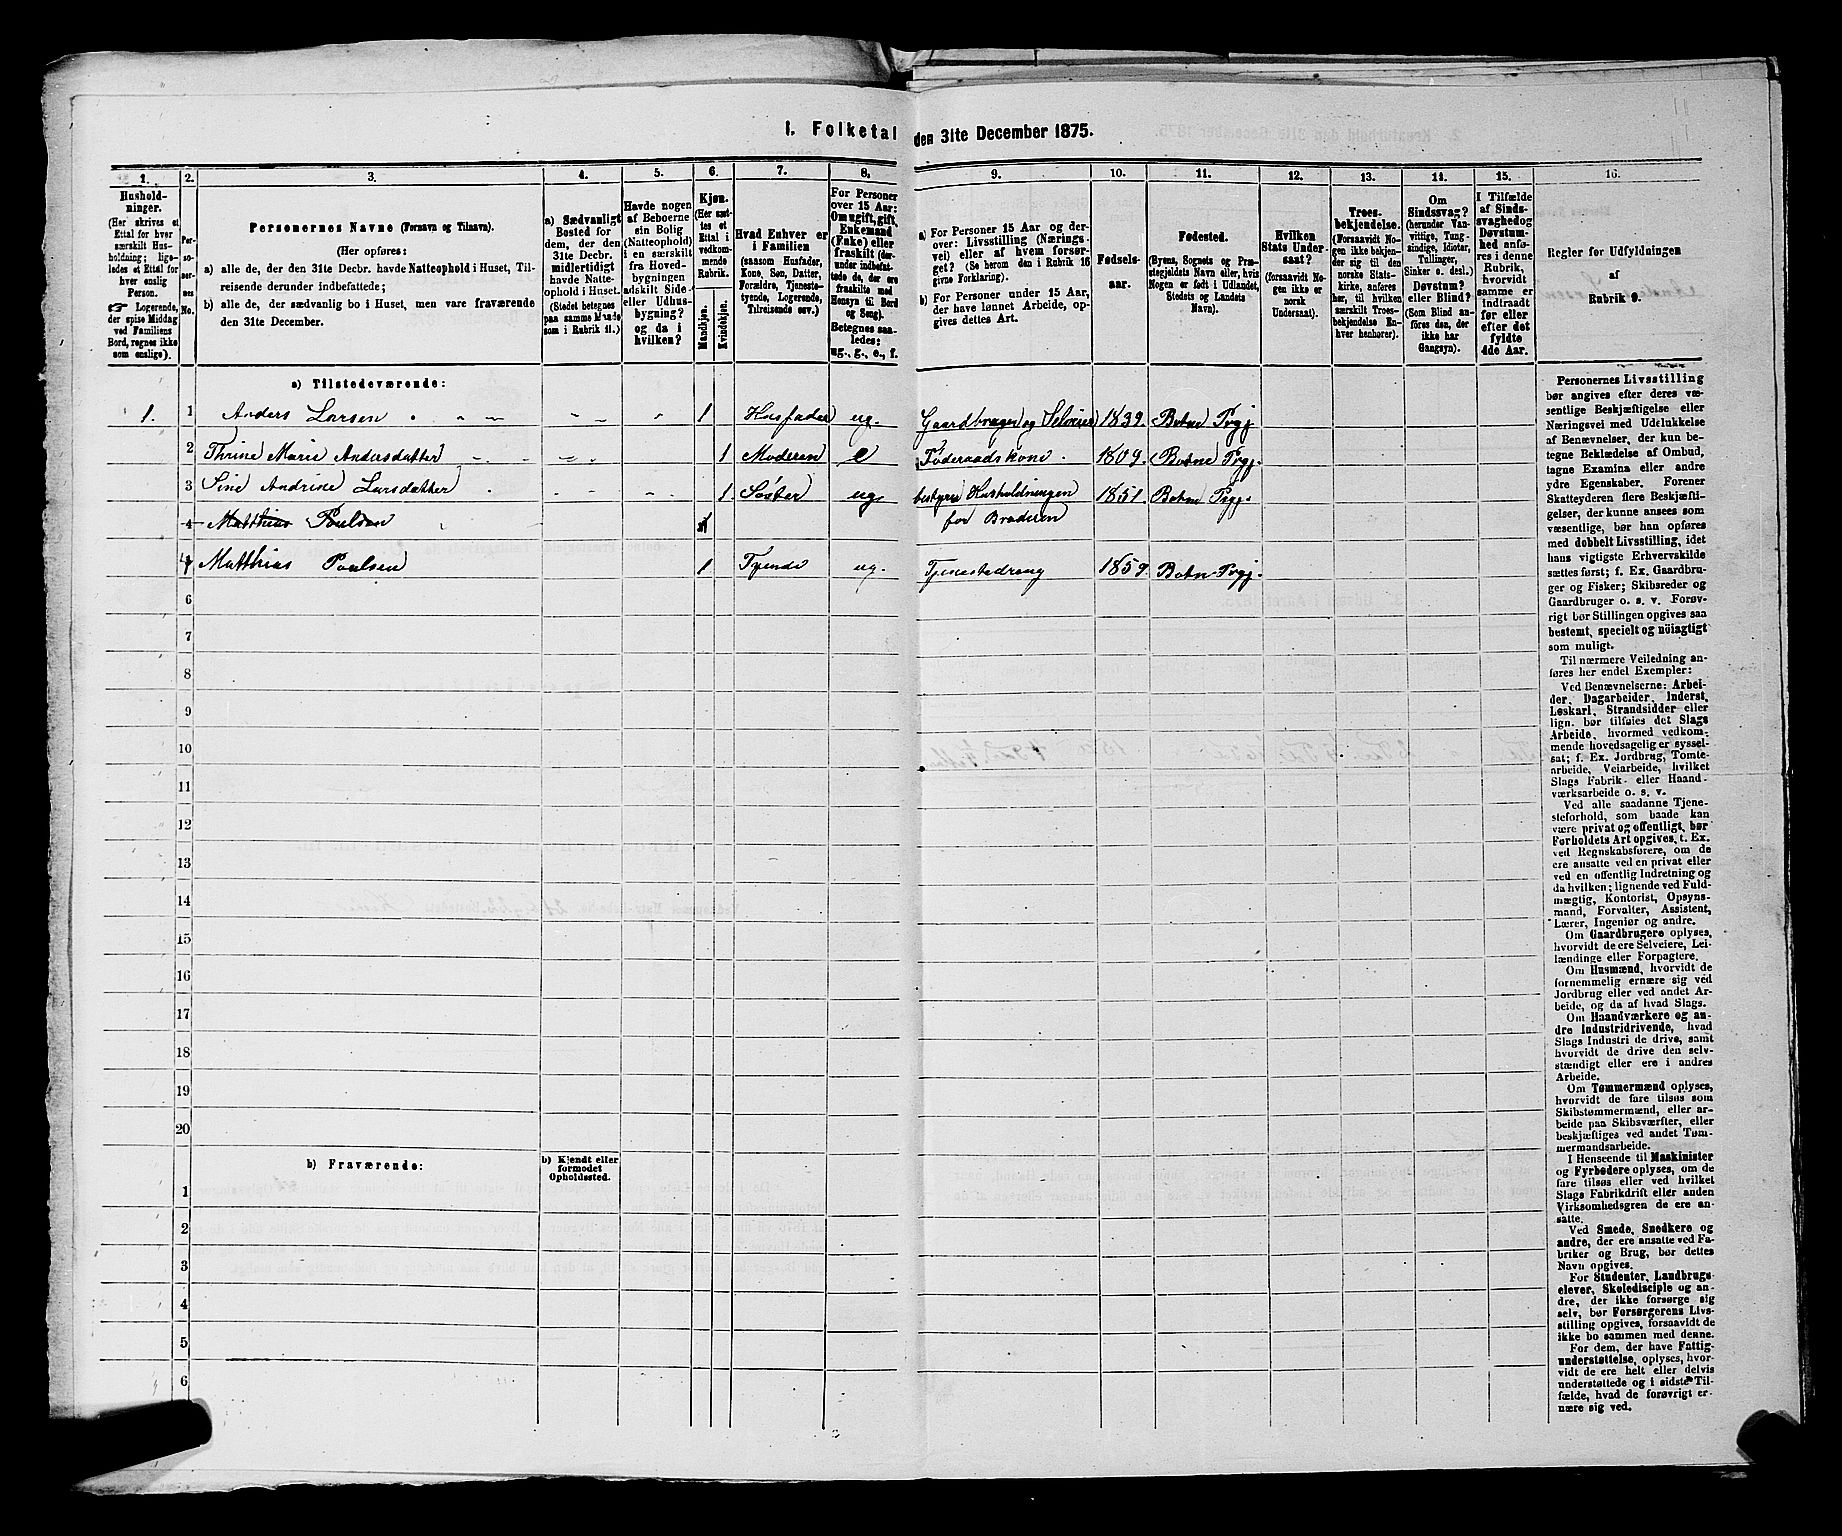 1. Folketal den 31te December 1875.
1.
2.
3.
4.
5.
6.
7.
8.
9.
10.
11.
12.
13.
14.
15.
16.
Husholdninger.
(Her skrives et
Ettal for hver
særskilt Husholdning;
ligeledes et Ettal for
hver enslig
Person.
☞ Logerende,
der spise Middag
ved Familiens
Bord, regnes ikke
som enslige).
Personernes No.
Personernes Navne (Fornavn og Tilnavn).
(Her opføres:
a) alle de, der den 31te Decbr. havde Natteophold i Huset, Tilreisende derunder indbefattede;
b) alle de, der sædvanlig bo i Huset, men vare fraværende
den 31te December.
a) Sædvanligt
Bosted for
dem, der den
31te Decbr.
midlertidigt
havde Natteophold i Huset.
(Stedet betegnes
paa samme Maade
som i Rubrik 11.)
Havde nogen
af Beboerne
sin Bolig
(Natteophold)
i en særskilt
fra Hovedbygningen
adskilt Side-
eller Udhusbygning?
og da i
hvilken?
Kjøn.
(Her sættes et
Ettal i
vedkommende
Rubrik.
Mandkjøn.
Kvindekjøn.
Hvad Enhver er
i Familien
(saasom Husfader,
Kone, Søn, Datter,
Forældre, Tjenestetyende, Logerende,
Tilreisende osv.)
For Personer
over 15 Aar:
Om ugift, gift,
Enkemand
(Enke) eller
fraskilt (derunder indbefattede de, der ere
fraskilte med
Hensyn til Bord
og Seng).
Betegnes saaledes:
ug., g., e., f.
a) For Personer 15 Aar og derover: Livsstilling (Næringsvei) eller af hvem forsørget? (Se herom den i Rubrik 16
givne Forklaring).
b) For Personer under 15 Aar,
der have lønnet Arbeide, opgives dettes Art.
Fødselsaar.
Fødested.
(Byens, Sognets og Præstegjeldets Navn eller, hvis
Nogen er født i Udlandet,
Stedets og Landets
Navn).
Hvilken
Stats Undersaat?
(forsaavidt Nogen ikke er
norsk
Undersaat).
Troesbekjendelse.
(Forsaavidt Nogen ikke bekjender sig til den
norske Statskirke, anføres
her, til hvilken
særskilt Troesbekjendelse Enhver henhører).
Om
Sindssvag?
(herunder Vanvittige, Tungsindige, Idioter,
Tullinger,
Sinker o. desl.)
Døvstum?
eller Blind?
(Som Blind anføres den, der
ikke har
Gangsyn).
I Tilfælde
af Sindssvaghed og
Døvstumhed anføres i denne
Rubrik,
hvorvidt
samme er
indtraadt
før eller
efter det
fyldte
4de Aar.
Regler for Udfyldningen
af
Rubrik 9.
a) Tilstedeværende:
1. 1 Anders Larsen 1 Husfader ug. Gaardbruger og Selveier 1839. Botne Prgj
2 Thrine Marie Andersdatter 1 Moderen e Føderaadskone. 1809. Botne Prgj.
3 Sine Andrine Larsdatter 1. Søster ug. bestyrer Husholdningen 1851. Botne Prgj.
for Broderen
4 Matthias Poulsen
4 Matthias Poulsen 1 Tyende ug. Tjenestedreng 1859. Botne Prgj.
6
7
8
9
10
11
12
13
14
15
16
17
18
19
20
b) Fraværende:
b) Kjendt eller
formodet
Opholdssted.
1
2
3
4
5
6
Personernes Livsstilling
bør angives efter deres væsentlige Beskjæftigelse eller
Næringsvei med Udelukkelse
af Benævnelser, der kun betegne Beklædelse af Ombud,
tagne Examina eller andre
ydre Egenskaber. Forener
Skatteyderen flere Beskjæftigelser, der kunne ansees som
væsentlige, bør han opføres
med dobbelt Livsstilling, idet
hans vigtigste Erhvervskilde
sættes først; f. Ex. Gaardbruger og Fisker; Skibsreder og
Gaardbruger o. s. v. Forøvrigt bør Stillingen opgives saa
bestemt, specielt og nöiagtigt
som muligt.
Til nærmere Veiledning anføres her endel Exempler:
Ved Benævnelserne: Arbeider, Dagarbeider, Inderst,
Løskarl, Strandsidder eller
lign. bør tilføies det Slags
Arbeide, hvormed vedkommende hovedsagelig er sysselsat; f. Ex. Jordbrug, Tomtearbeide, Veiarbeide, hvilket
Slags Fabrik- eller Haandværksarbeide o. s. v.
Ved alle saadanne Tjenesteforhold, som baade kan
være privat og offentligt, bør
Forholdets Art opgives, t. Ex.
ved Regnskabsførere, om de
ere ansatte ved en privat eller
ved en offentlig Indretning og
da hvilken; lignende ved Fuldmægtig, Kontorist, Opsynsmand, Forvalter, Assistent,
Lærer, Ingeniør og andre.
Om Gaardbrugere oplyses,
hvorvidt de ere Selveiere, Leilændinge eller Forpagtere.
Om Husmænd, hvorvidt de
fornemmelig ernære sig ved
Jordbrug eller ved andet Arbeide, og da af hvad Slags.
Om Haandværkere og andre Industridrivende, hvad
Slags Industri de drive, samt
hvorvidt de drive den selvstændigt eller ere i andres
Arbeide.
Om Tømmermænd oplyses,
hvorvidt de fare tilsøs som
Skibstømmermænd, eller arbeide paa Skibsværfter, eller
beskjæftiges ved andet Tømmermandsarbeide.
I Henseende til Maskinister
og Fyrbødere oplyses, om de
fare tilsøs eller ved hvilket
Slags Fabrikdrift eller anden
Virksomhedsgren de ere ansatte.
Ved Smede, Snedkere og
andre, der ere ansatte ved Fabriker og Brug, bør dettes
Navn opgives.
For Studenter, Landbrugselever, Skoledisciple og andre, der ikke forsørge sig
selv, bør Forsørgerens Livsstilling opgives, forsaavidt de
ikke bo sammen med denne.
For dem, der have Fattigunderstøttelse, oplyses, hvorvidt de ere helt eller delvis
understøttede og i sidste Tilfælde, hvad de forøvrigt ernære sig ved.